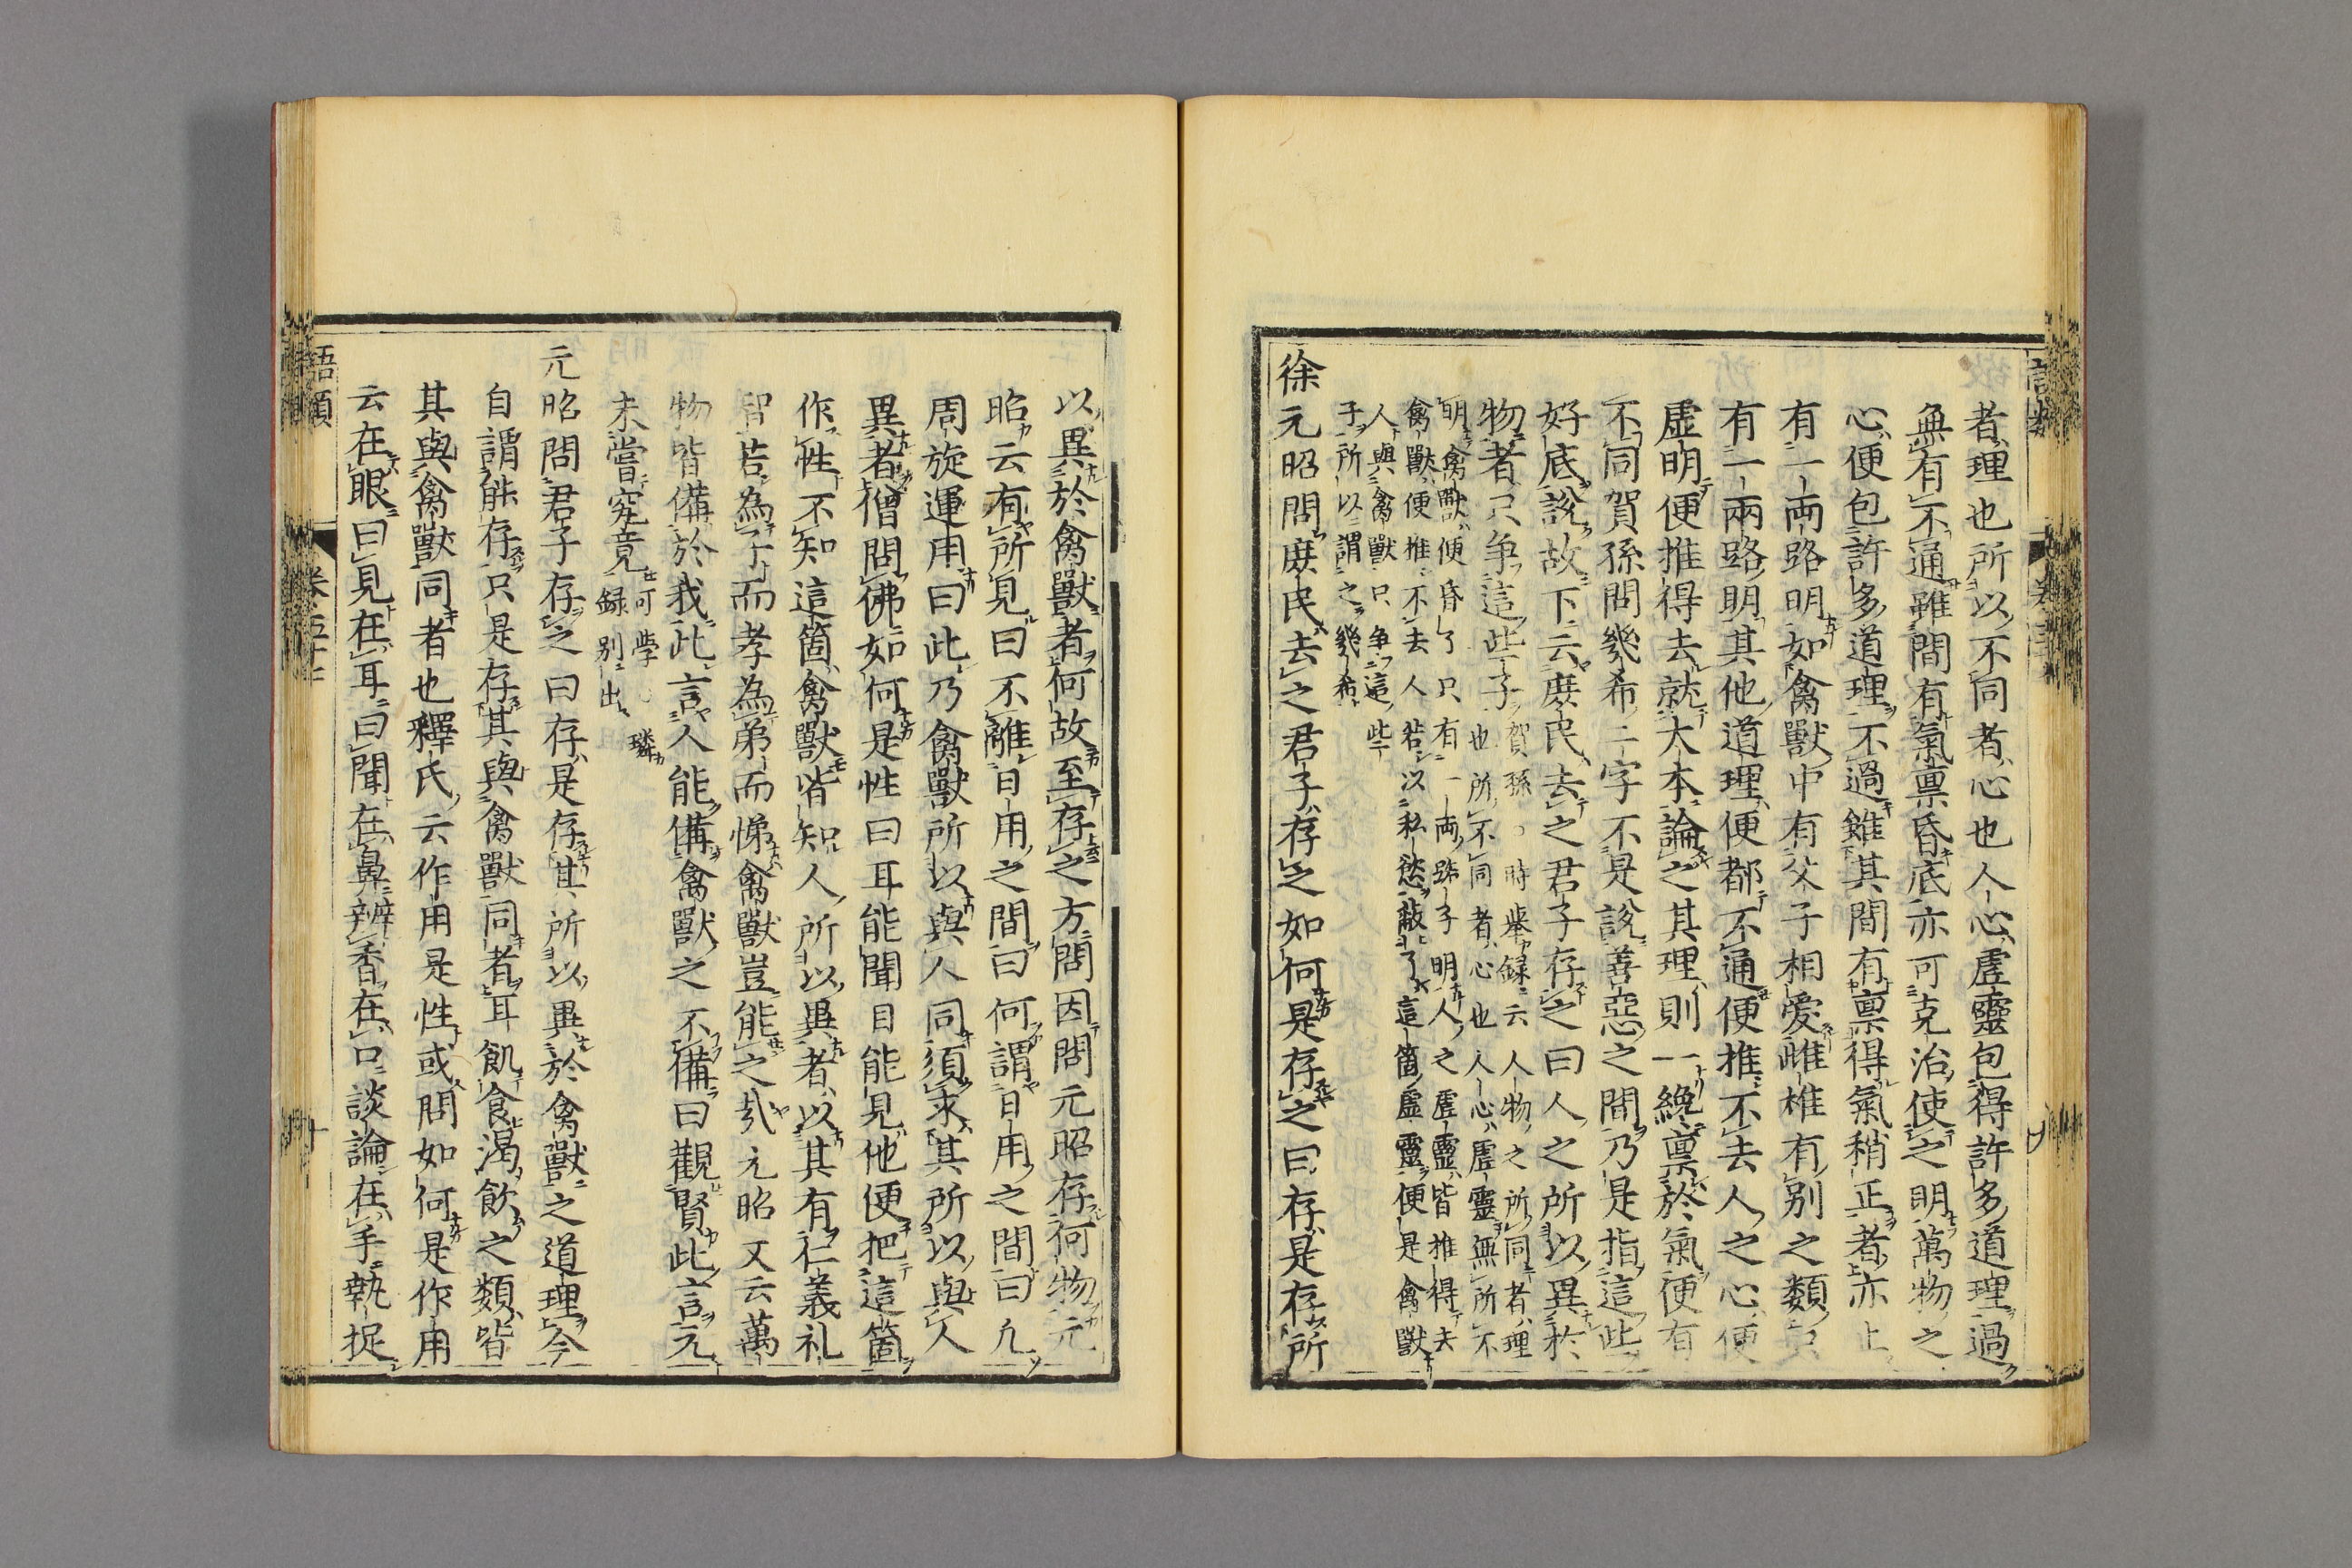 者理也所以不同者心也人心虛靈包得許多道理過
無有不通雖間有氣稟昏底亦可克治使之明萬物之
心便包許多道理不過雖其間有稟得氣稍正者亦止
有一兩路明如禽獸中有父子相愛雌雄有別之類只
有一兩路明其他道理便都不通便推不去人之心便
虛明便推得去就大本論之其理則一纔稟於氣便有
不同賀孫問幾希二字不是說善惡之間乃是指這些
好底說故下云庶民去之君子存之曰人之所以異於
物者只爭這些子賀孫○時舉錄云人物之所同者理
也所不同者心也人心虛靈無所不
明禽獸便昏了只有一兩路子明人之虛靈皆推得去
禽獸便推不去人若以私慾蔽了這箇虛靈便是禽獸
人與禽獸只爭這些
子所以謂之幾希
徐元昭問庶民去之君子存之如何是存之曰存是存所
以異於禽獸者何故至存之方問因問元昭存何物元
昭云有所見曰不離日用之間曰何謂日用之間曰凡
周旋運用曰此乃禽獸所以與人同須求其所以與人
異者僧問佛如何是性曰耳能聞目能見他便把這箇
作性不知這箇禽獸皆知人所以異者以其有仁義礼
智若為子而孝為弟而悌禽獸豈能之哉元昭又云萬
物皆備於我此言人能備禽獸之不備曰觀賢此言元
未嘗究竟可學○璘
錄別出
元昭問君子存之曰存是存其所以異於禽獸之道理今
自謂能存只是存其與禽獸同者耳飢食渴飲之類皆
其與禽獸同者也釋氏云作用是性或問如何是作用
云在眼曰見在耳曰聞在鼻辨香在口談論在手執捉
語類
卷五十七